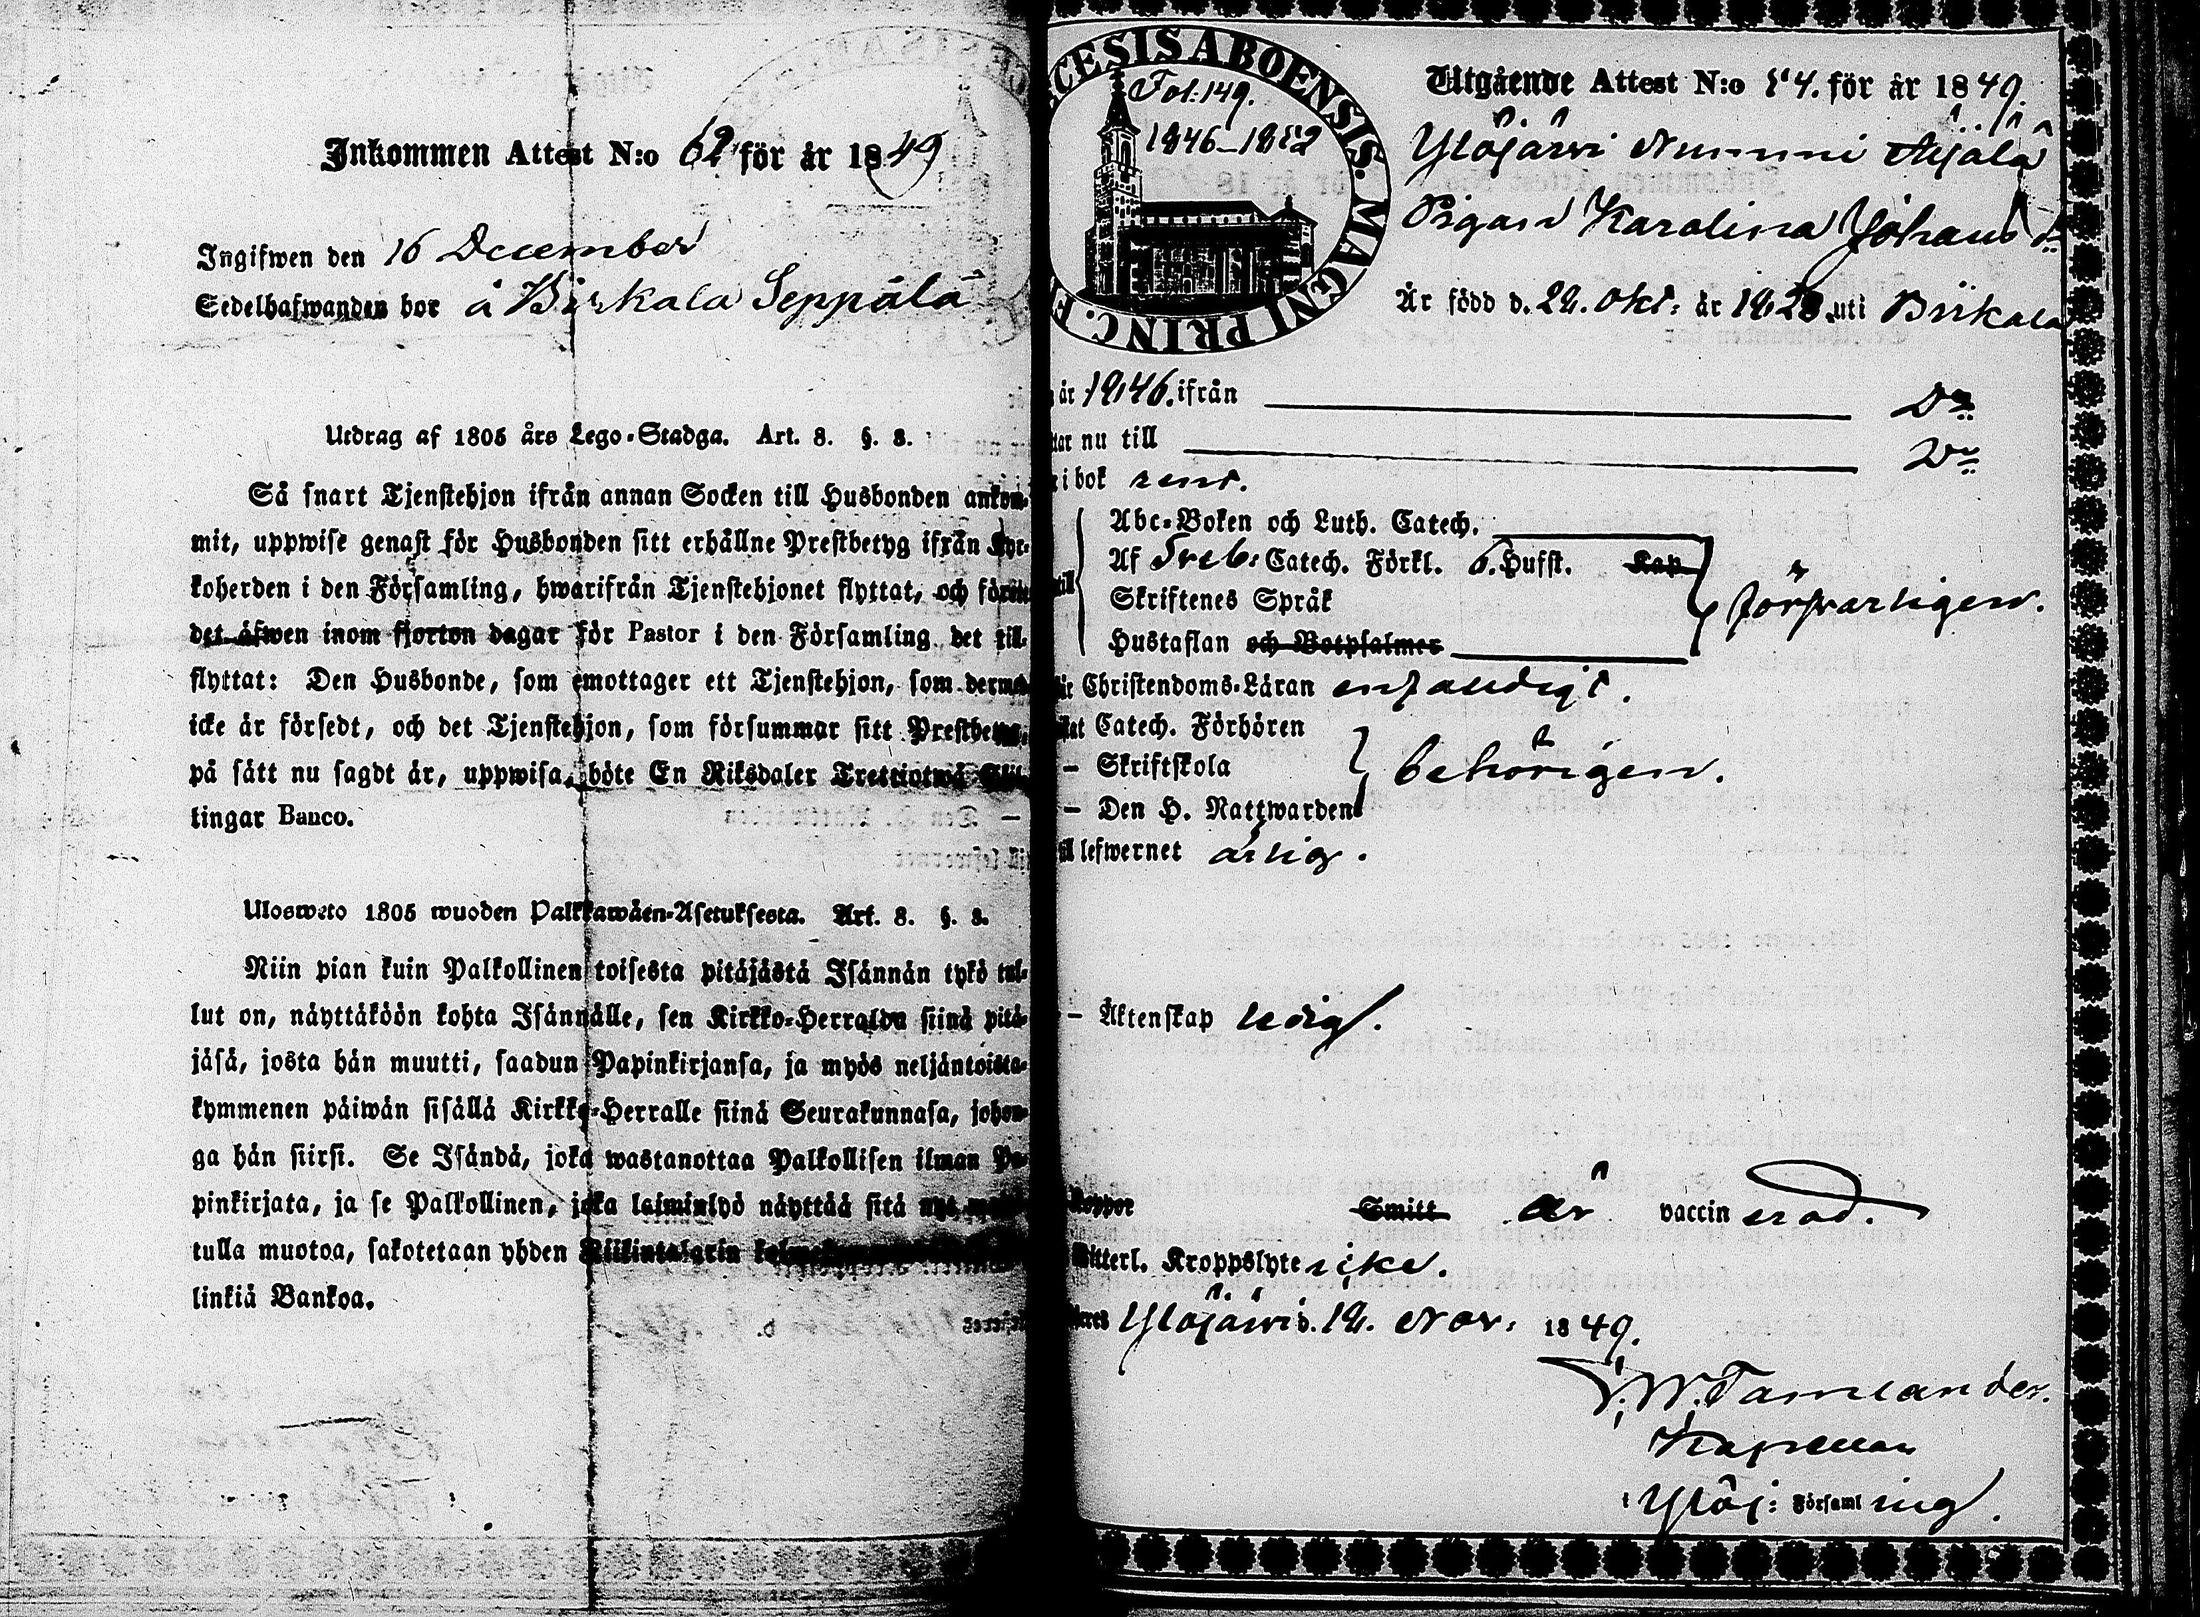 Inkommen Attest N:o 62 för år 1849
Ingifwen den 16 December
Sedelhafwanden bor å Birkala Seppälä
Utdrag af 1805 års Lego-Stadga. Art. 8. §. 8.
Så snart Tjenstehjon ifrån annan Socken till Husbonden ankom-
mit, uppwise genast för Husbonden sitt erhållne Prestbetyg ifrån Kyr-
koherden i den Församling, hwarifrån Tjenstehjonet flyttat, och förete
det äfwen inom fjorton dagar för Pastor i den Församling det till-
flyttat: Den Husbonde, som emottager ett Tjenstehjon, som dermed
icke är försedt, och det Tjenstehjon, som försummar sitt Prestbetyg,
på sätt nu sagdt är, uppwisa, böte En Riksdaler Trettiotwå Skil-
lingar Banco.
Ulosweto 1805 wuoden Palkkawäen-Asetuksesta. Art. 8. §. 8.
Niin pian kuin Palkollinen toisesta pitäjästä Isännän tykö tul-
lut on, näyttäköön kohta Isännälle, sen Kirkko-Herralda siinä pitä-
jäsä, josta hän muutti, saadun Papinkirjansa, ja myös neljäntoista-
kymmenen päiwän sisällä Kirkko-Herralle siinä Seurakunnasa, johon-
ga hän siirsi. Se Isändä, joka wastanottaa Palkollisen ilman Pa-
pinkirjata, ja se Palkollinen, joka laiminlyö näyttää sitä nyt
tulla muotoa, sakotetaan yhden Riikintalarin
linkiä Bankoa.
CESIS ABOENSIS. MAGNI PRINC. F
Fol: 149.
1846-1852
Utgående Attest N:o 54. för år 1849.
Ylöjärvi Nummi Äijälä
Pigan Karolina Johansdr
Är född d. 22. Okt: år 1828 uti Birkala
år 1846. ifrån Do
tar nu till Do
i bok rent.
Abc-Boken och Luth. Catech.
Af Sveb: Catech. Förkl. 6. Hufst. Kap
Skriftenes Språk
Hustaflan och Botpsalmer
försvarligen.
Christendoms-Läran enfaldigt.
Catech. Förhören
– Skriftskola
– Den H. Nattwarden
behörigen.
lefwernet ärlig.
– Äktenskap ledig.
Koppor Smitt är vaccinerad.
Witterl. Kroppslyte icke.
Ylöjärvi d. 12. Nov: 1849.
Tamlander.
Kapellan
i Ylöj: Församling.